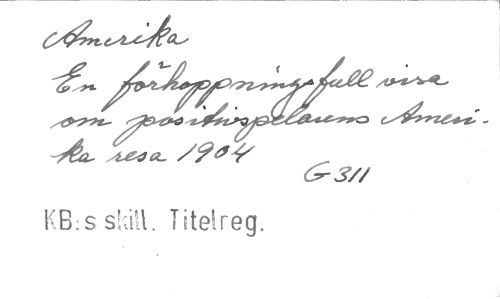 Amerika
En förhoppningsfull visa
om positivspelarens Ameri-
ka resa 1904
G 311
KB:s skill. Titelreg.